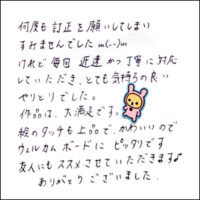 何度も訂正を願いしてしまい
すみませんでした m(_ _)m
けれど毎回 迅速かつ丁寧に対応
していただき、とても気持ちの良い
やりとりでした。
作品は、大満足です。
絵のタッチも上品で、かわいいので
ウェルカムボードに ピッタリです
友人にもススメさせていただきます♪
ありがとうございました。